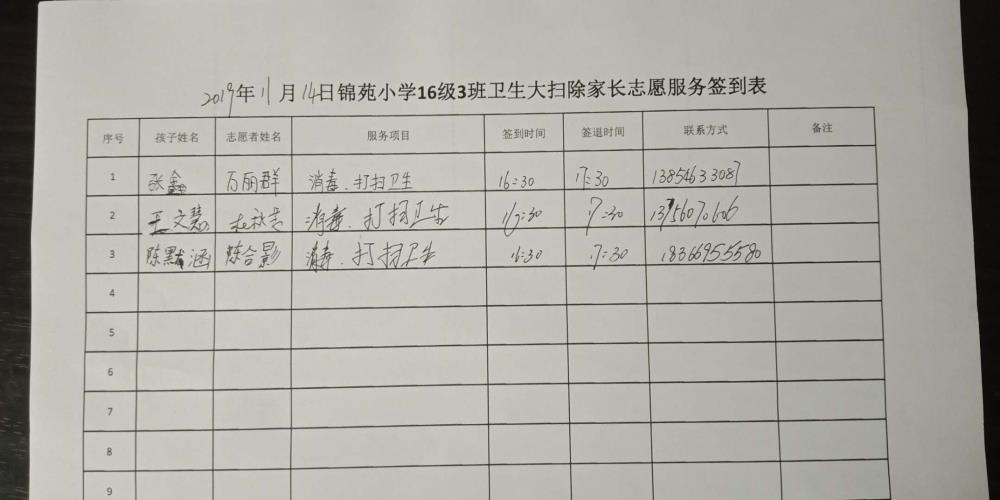 2019年11月14日锦苑小学16级3班卫生大扫除家长志愿服务签到表
序号 孩子姓名 志愿者姓名 服务项目 签到时间 签退时间 联系方式 备注
1 张鑫 万丽群 消毒、打扫卫生 16:30 17:30 13854633087
2 王文慧 消毒、打扫卫生 16:30 17:30 13756070606
3 陈默涵 陈合影 消毒、打扫卫生 16:30 17:30 18366955580
4
5
6
7
8
9